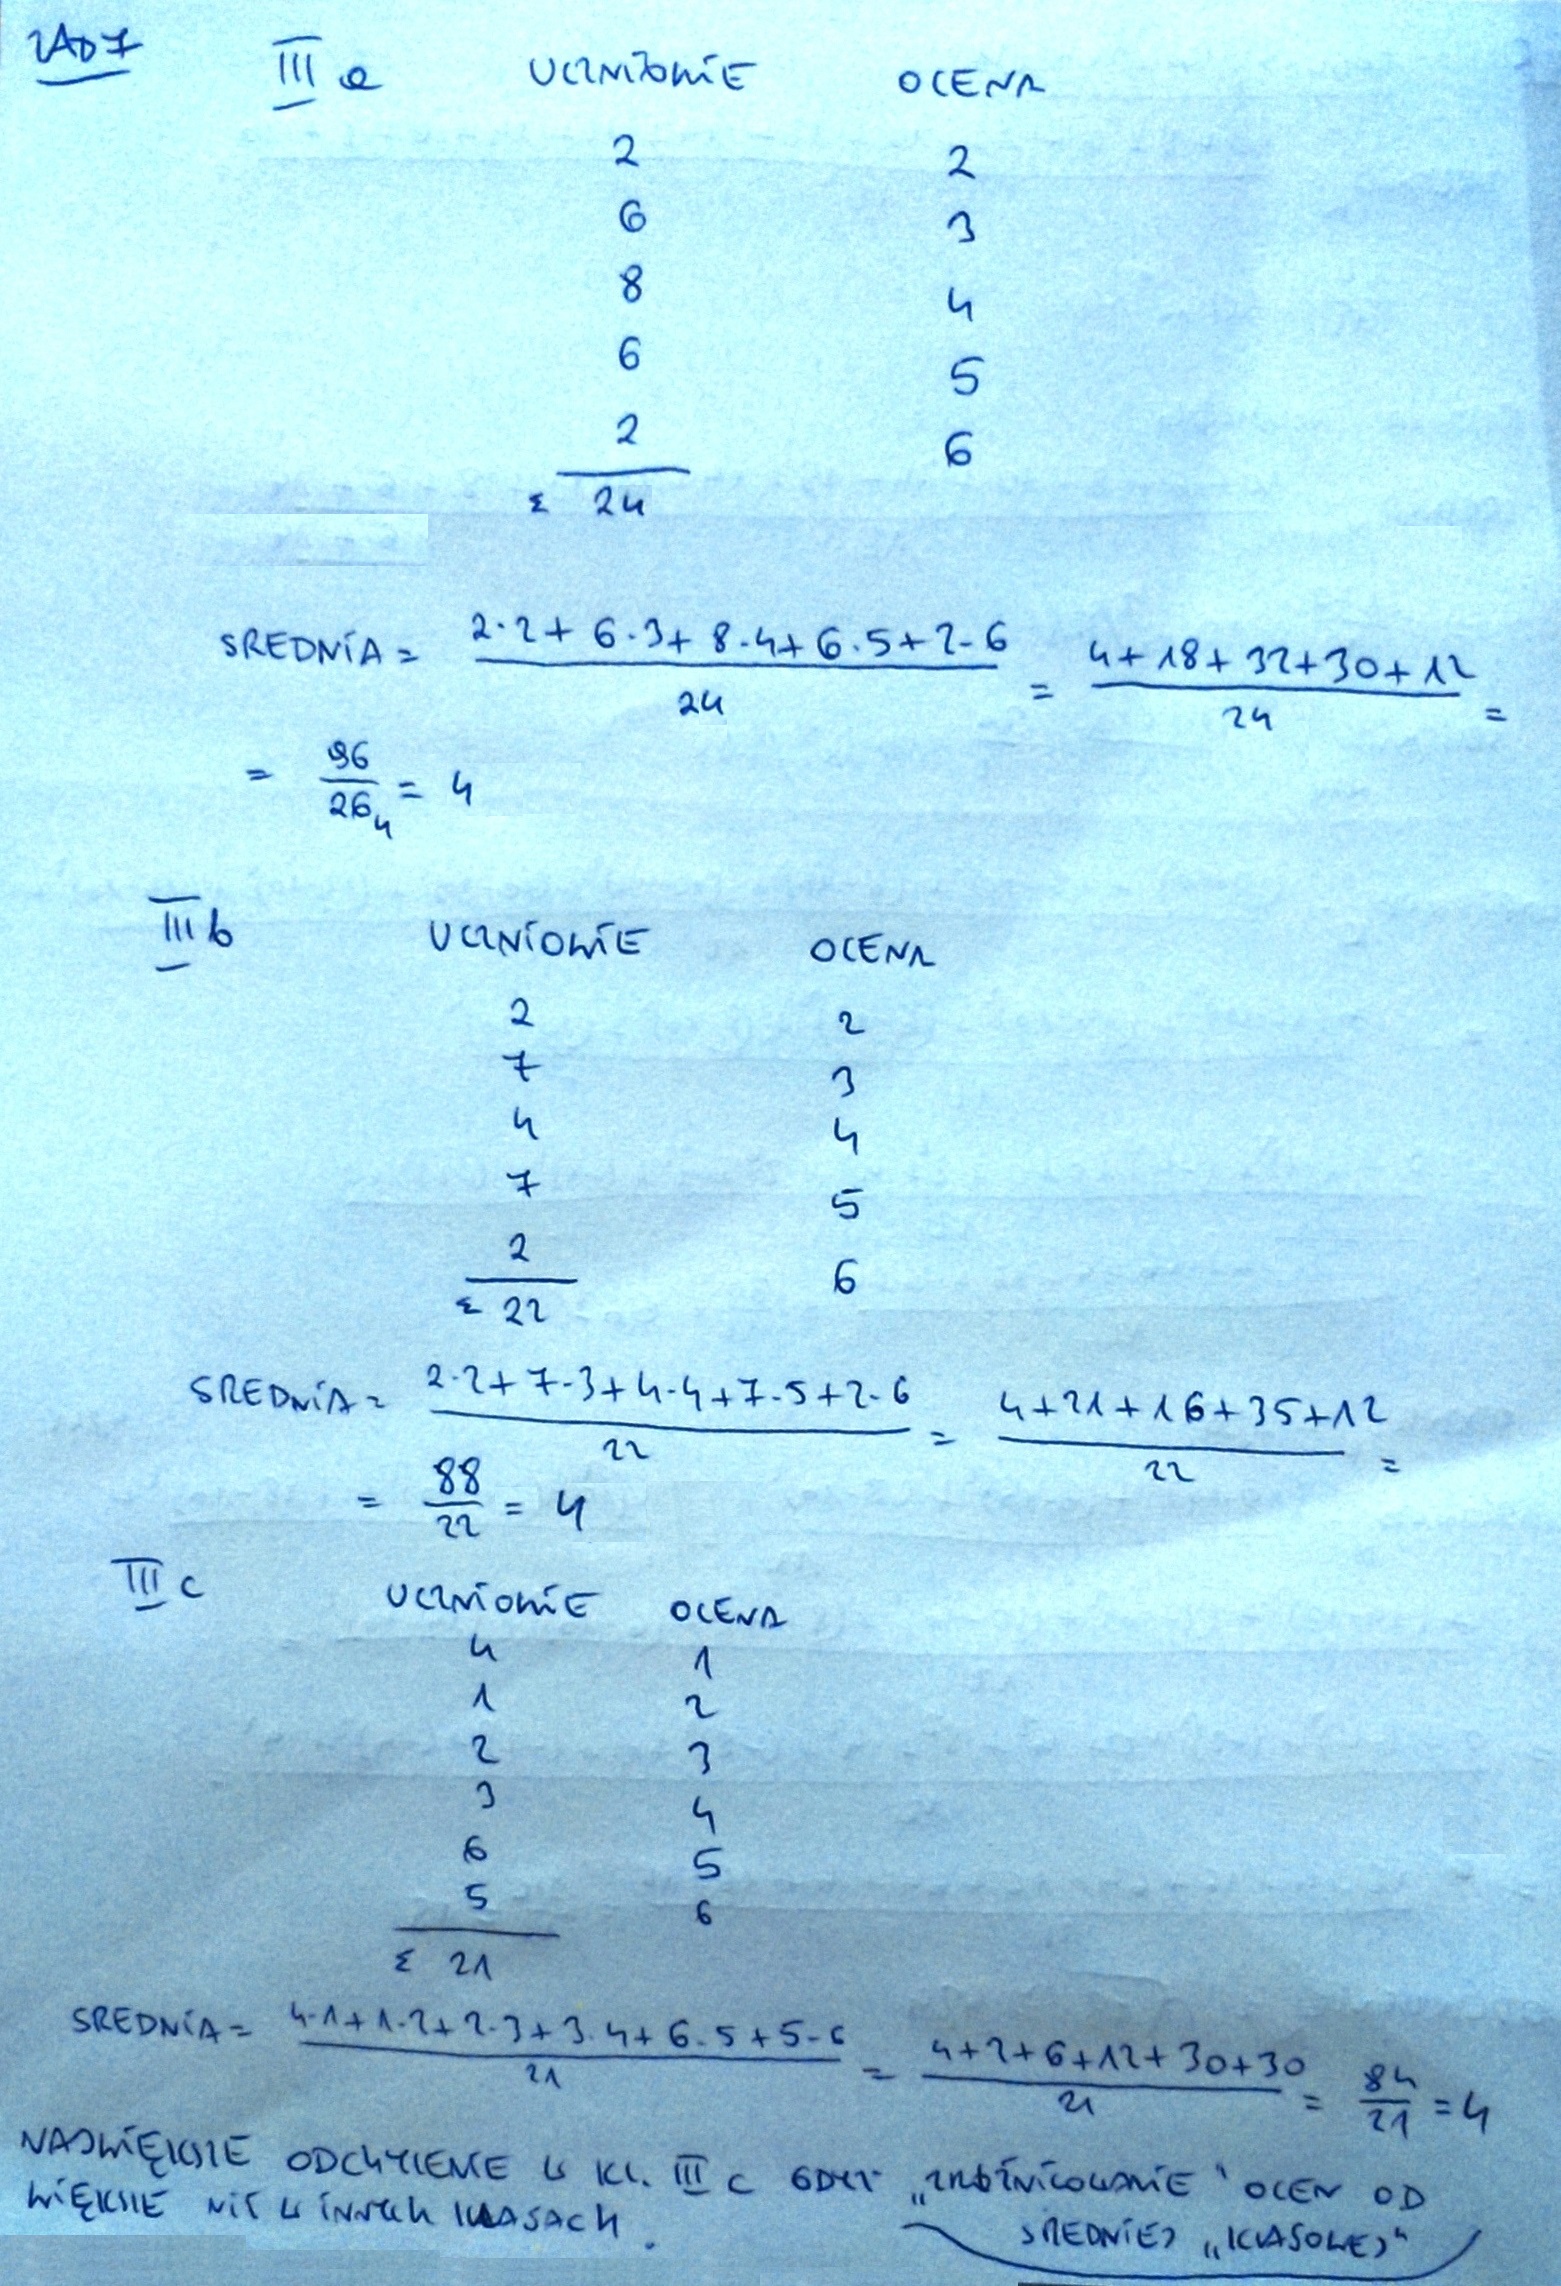 ZAD 7
III a UCZNIOWIE OCENA
2 2
6 3
8 4
6 5
2 6
Σ 24
SREDNIA = 2·2+6·3+8·4+6·5+2·6 / 24 = 4+18+32+30+12 / 24 =
= 96 / 264 = 4
III b UCZNIOWIE OCENA
2 2
7 3
4 4
7 5
2 6
Σ 22
SREDNIA = 2·2+7·3+4·4+7·5+2·6 / 22 = 4+21+16+35+12 / 22 =
= 88 / 22 = 4
III c UCZNIOWIE OCENA
4 1
1 2
2 3
3 4
6 5
5 6
Σ 21
SREDNIA = 4·1+1·2+2·3+3·4+6·5+5·6 / 21 = 4+2+6+12+30+30 / 21 = 84 / 21 = 4
NAJWIĘKSZE ODCHYLENIE W KL. III c GDYŻ „ZRÓŻNICOWANIE" OCEN OD
WIĘKSZE NIŻ W INNYCH KLASACH.
SREDNIEJ „KLASOWEJ"